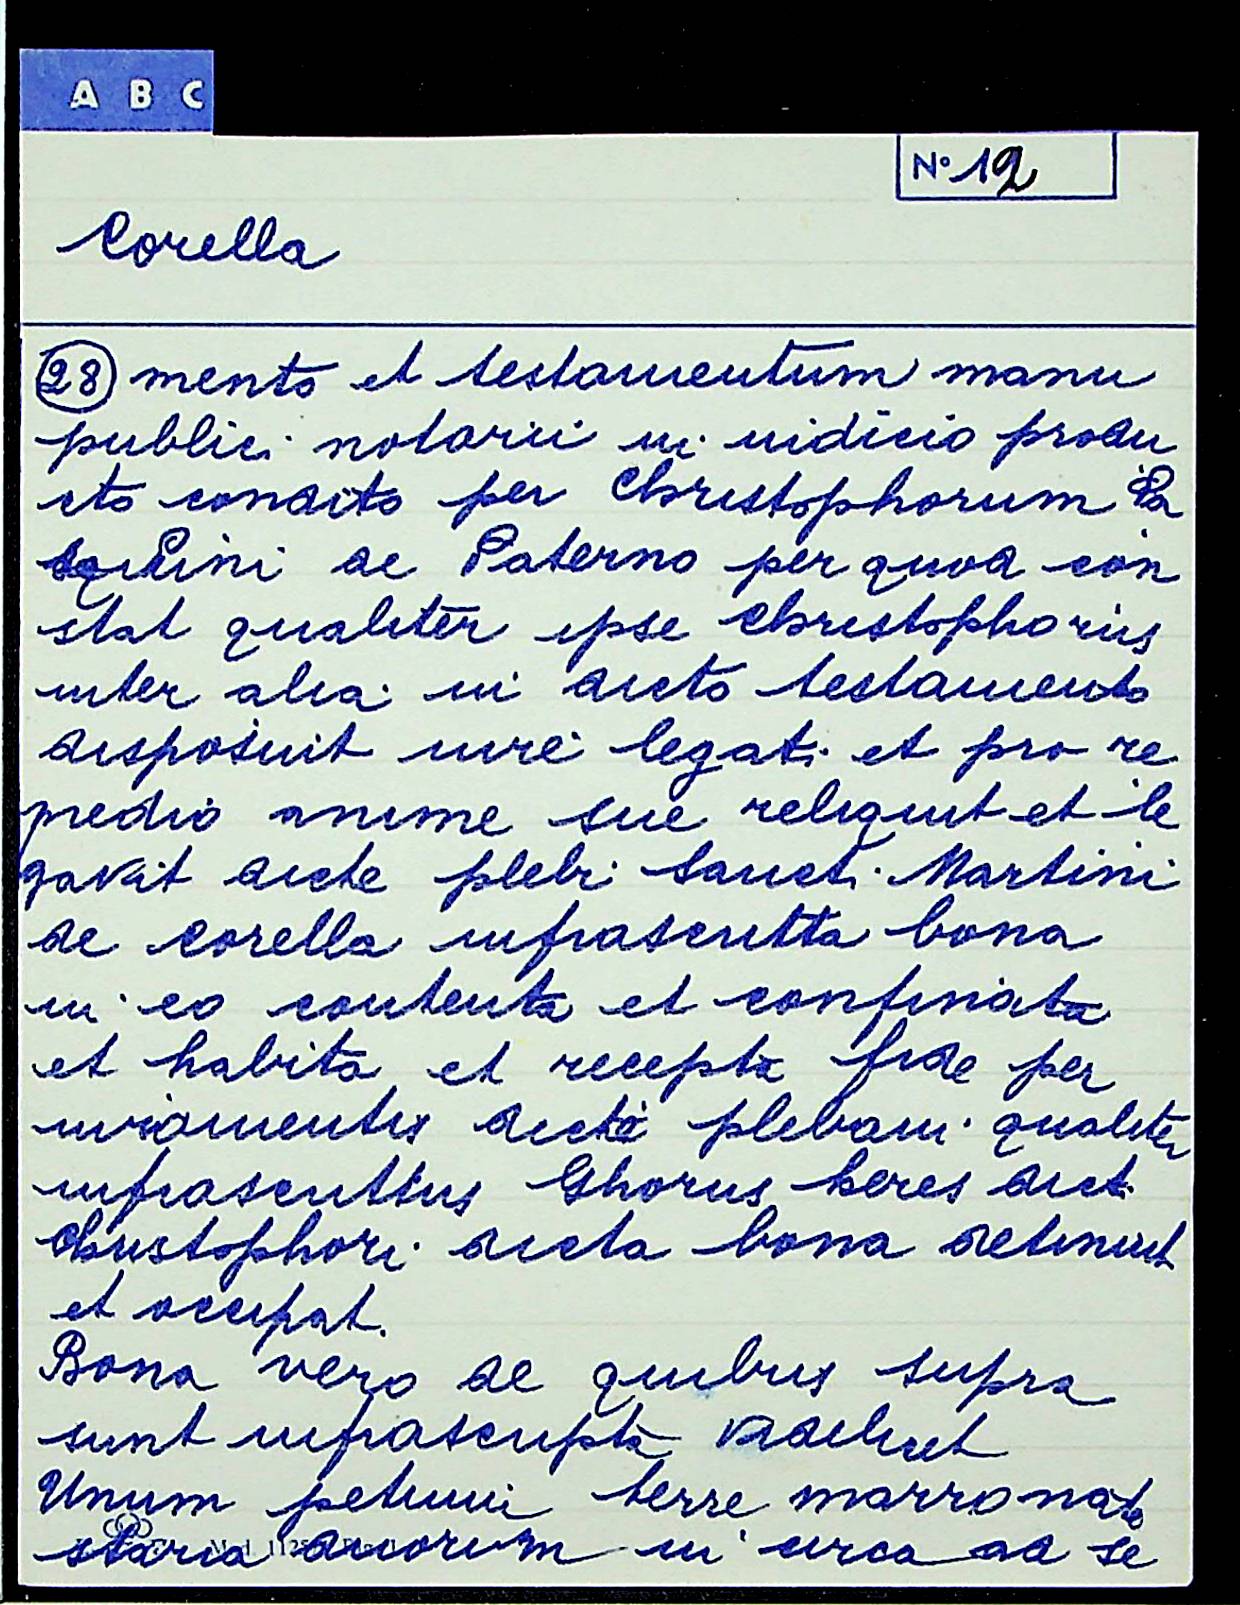 A B C
N° 12
Corella
28 mento et testamentum manu
publici notarii in iudicio produ
cto condito per Christophorum
de Paterno per quod con
stat qualiter ipse Christophorus
inter alia in dicto testamento
disposuit iure legati et pro re
medio anime sue reliquit et le
gavit dicte plebi Sancti Martini
de Corella infrascritta bona
in eo contenta et confinata
et habita et recepta fide per
iuramentis dicti plebani qualiter
infrascrittus Ghorus heres dicti
Christophori dicta bona detinuit
et occupat.
Bona vero de quibus supra
sunt infrascripta videlicet
Unum petium terre marronate
staria duorum in circa ad se